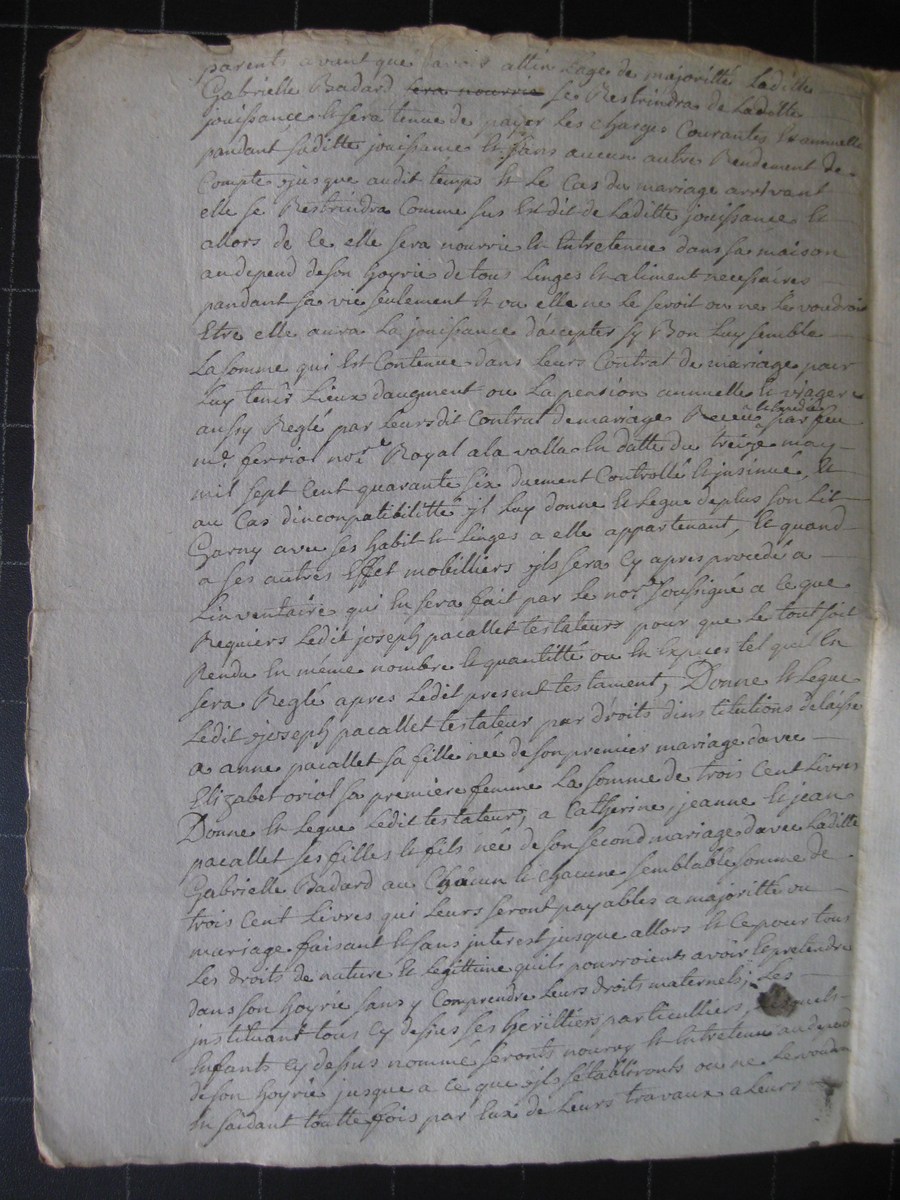 parents avant que d'avoir attin Lage de majoritté Laditte
Gabrielle Badard sera nourrie se Restrindra de Laditte
jouissance Et sera tenue de payer Les charges Courantes Et annuelle
pandant Saditte jouissance Et sans aucun autre Rendement de
Compte jusque audit temps Et Le Cas du mariage arrivant
elle se Restrindra Comme sus Est dit de Laditte jouissance Et
allors de Ce elle sera nourrie Et Entretenue dans sa maison
au depend de son hoyrie de tous Linges Et aliment necessaires
pandant sa vie seulement Et ou elle ne Le seroit ou ne Le voudroit
Etre elle aura La jouissance d'acceptes sy Bon Luy semble
La somme qui Est Contenue dans Leurs Contrat de mariage pour
Luy tenir Lieux daugment ou La pension annuelle Et viagere
aussy Reglé par Leursdit Contrat de mariage Receu par feu
me. ferriol nore. Royal a la valla En datte du treize may
mil sept Cent quarante six duement Controllé Et jnsinué, Et
au Cas dincompatibilitté jl Luy donne Et Legue de plus son Lit
Garny avec ses habit Et Linges a elle appartenant, Et quand
a ses autres Effet mobilliers jls sera Cy apres procedé a
Linventaire qui En sera fait par Le nore. soussigné a Ce que
Requiers Ledit joseph pacallet testateurs pour que Le tout soit
Rendu En même nombre Et quantitté ou En Especes tel quil En
sera Reglé apres Ledit present testament, Donne Et Legue
Ledit joseph pacallet testateur par droits dinstitutions delaisse
a anne pacallet sa fille née de son premier mariage davec
Elizabet oriol sa premiere femme La somme de trois Cent Livres
Donne Et Legue Ledit testateurs a Catherine, jeanne Et jean
pacallet ses filles Et fils née de son second mariage davec Laditte
Gabrielle Badard au Chacun Et chacune semblable somme de
trois Cent Livres qui Leurs seront payables a majoritté ou
mariage faisant Et sans interest jusque allors Et Ce pour tous
Les droits de nature Et Legittime quils pourroients avoir Et pretendre
dans son hoyrie sans y Comprendre Leurs droits maternels, Les
jnstituant tous Cy dessus ses herittiers particulliers, Lesquels
Enfants Cy dessus nommé seronts nourry Et Entretenu au depend
de son hoyrie jusque a Ce que jls s'établironts ou ne Le voudront
En saidant toutte fois par Eux de Leurs travaux a Leurs